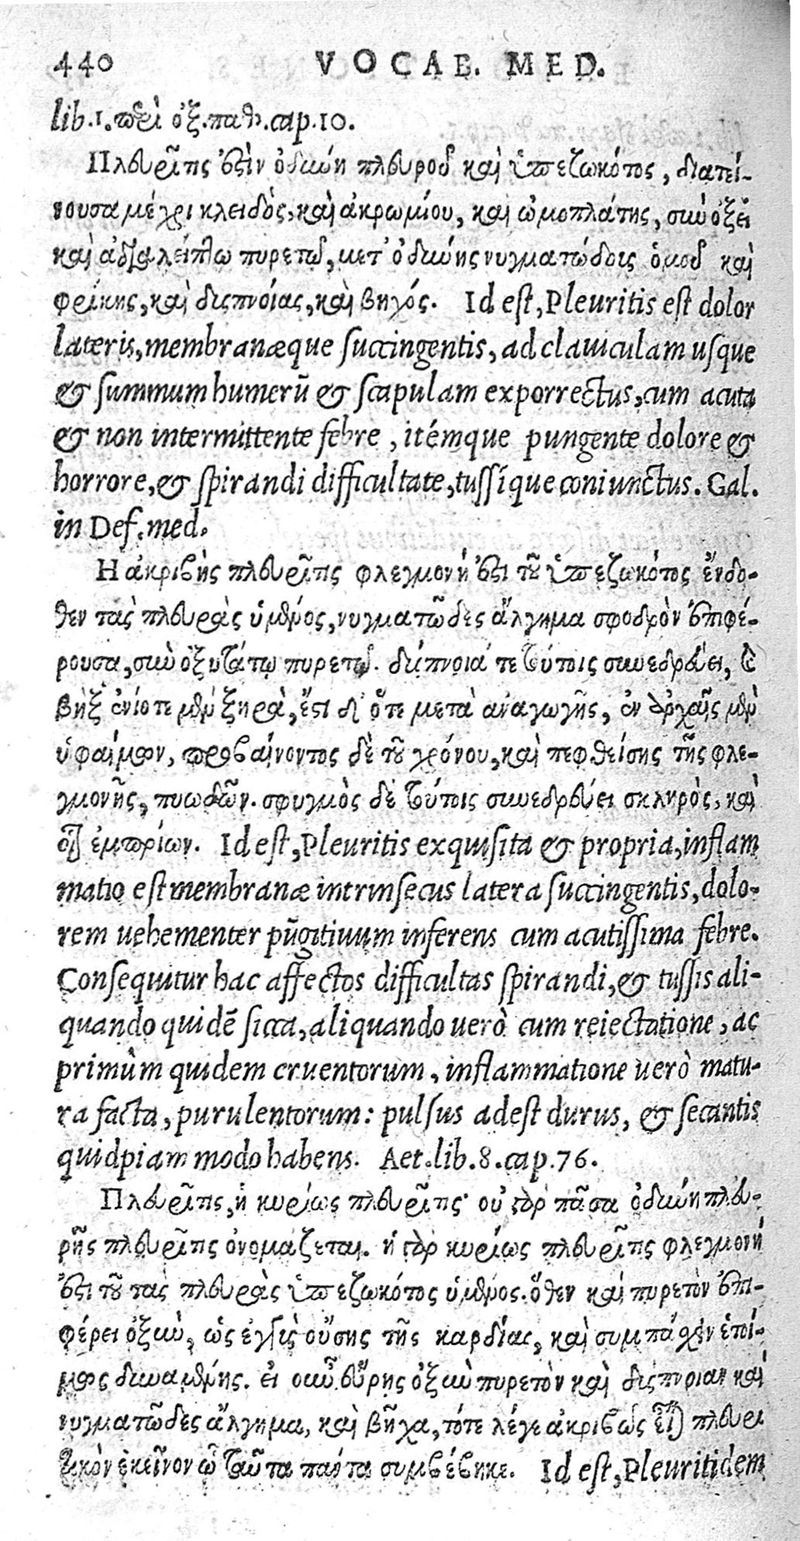 440 VOCAB. MED.
lib.1.περὶ ὀξ.παθ.cap.10.
Πλευρῖτις ἐστὶν ὀδύνη πλευροῦ καὶ ὑπεζωκότος, διατεί-
νουσα μέχρι κλειδὸς, καὶ ἀκρωμίου, καὶ ὠμοπλάτης, σὺν ὀξεῖ
καὶ ἀδιαλείπτῳ πυρετῷ, μετ' ὀδύνης νυγματώδοις ὁμοῦ καὶ
φρίκης, καὶ δυσπνοίας, καὶ βηχός. Id est, Pleuritis est dolor
lateris, membranæque succingentis, ad clauiculam usque
& summum humerũ & scapulam exporrectus, cum acuta
& non intermittente febre, itémque pungente dolore &
horrore, & spirandi difficultate, tussíque coniunctus. Gal.
in Def. med.
Η ἀκριβὴς πλευρῖτις φλεγμονή ἐστι τοῦ ὑπεζωκότος ἔνδο-
θεν τὰς πλευρὰς ὑμένος, νυγματῶδες ἄλγημα σφοδρὸν ἐπιφέ-
ρουσα, σὺν ὀξυτάτῳ πυρετῷ. δύπνοιά τε τούτοις συνεδρεύει, &
βὴξ ἐνίοτε μὲν ξηρὰ, ἔστι δ' ὅτε μετὰ ἀναγωγῆς, ἐν ἀρχαῖς μὲν
ὑφαίμων, προβαίνοντος δὲ τοῦ χρόνου, καὶ πεφθείσης τῆς φλε-
γμονῆς, πυωδῶν. σφυγμὸς δὲ τούτοις συνεδρεύει σκληρὸς, καὶ
οἷον ἐμπρίων. Id est, Pleuritis exquisita & propria, inflam
matio est membranæ intrinsecus latera succingentis, dolo-
rem uehementer pũgitiuum inferens cum acutissima febre.
Consequitur hac affectos difficultas spirandi, & tussis ali-
quando quidẽ sicca, aliquando uerò cum reiectatione, ac
primùm quidem cruentorum, inflammatione uerò matu-
ra facta, purulentorum: pulsus adest durus, & secantis
quidpiam modo habens. Aet.lib.8.cap.76.
Πλευρῖτις, ἡ κυρίως πλευρῖτις· οὐ γὰρ πᾶσα ὀδύνη πλευ-
ρῆς πλευρῖτις ὀνομάζεται. ἡ γὰρ κυρίως πλευρῖτις φλεγμονή
ἐστι τοῦ τὰς πλευρὰς ὑπεζωκότος ὑμένος. ὅθεν καὶ πυρετὸν ἐπι-
φέρει ὀξὺν, ὡς ἐγγὺς οὔσης τῆς καρδίας, καὶ συμπάσχειν ἑτοί-
μως δυναμένης. εἰ οὖν εὕρῃς ὀξὺν πυρετὸν καὶ δύσπνοιαν καὶ
νυγματῶδες ἄλγημα, καὶ βῆχα, τότε λέγε ἀκριβῶς εἶναι πλευρι
τικὸν ἐκεῖνον ᾧ ταῦτα πάντα συμβέβηκε. Id est, Pleuritidem